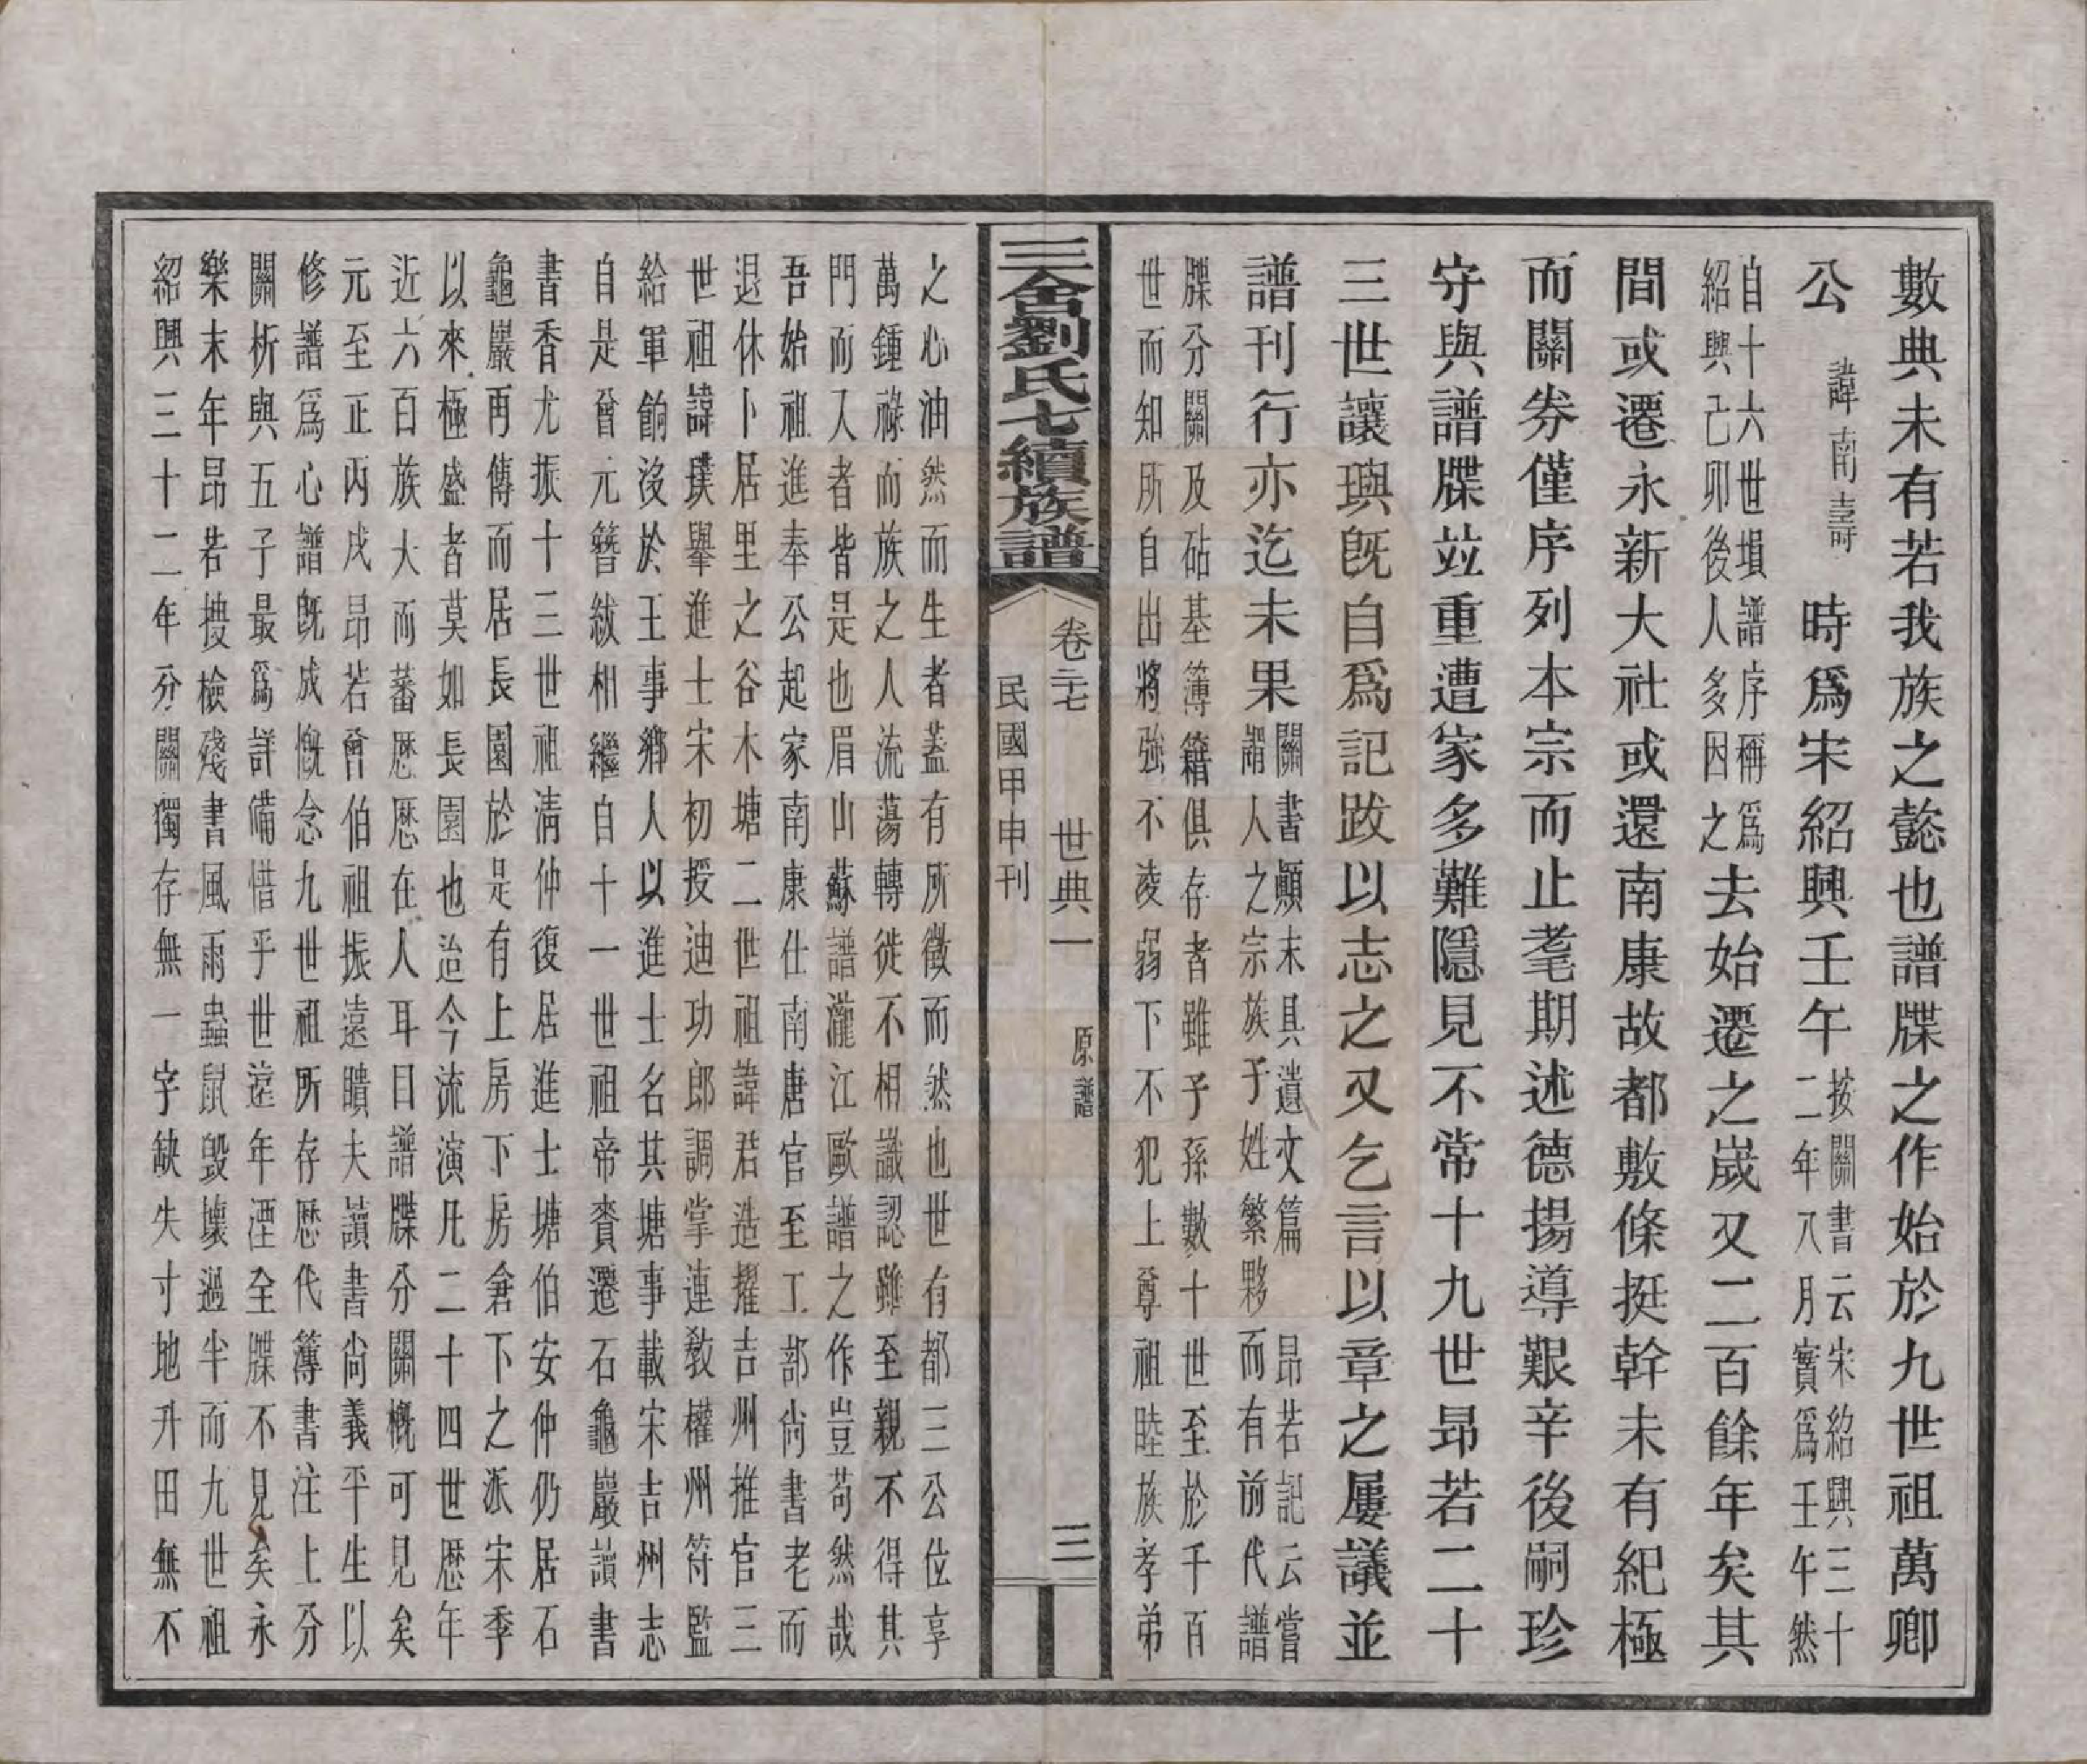 數典未有若我族之懿也譜牒之作始於九世祖萬卿
公諱南壽時爲宋紹興壬午按關書云宋紹興三十二年八月實爲壬午然
自十六世塤譜序稱爲紹興己卯後人多因之去始遷之歲又二百餘年矣其
間或遷永新大社或還南康故都敷條挺幹未有紀極
而關券僅序列本宗而止耄期述德揚導艱辛後嗣珍
守與譜牒竝重遭家多難隱見不常十九世昂若二十
三世讓璵旣自爲記跋以志之又乞言以章之屢議並
譜刊行亦迄未果關書顚末具遺文篇昂若記云當謂人之宗族子姓繁夥而有前代譜
牒分關及砧基簿籍俱存者雖子孫數十世至於千百
世而知所自出將強不凌弱下不犯上尊祖睦族孝弟
三舍劉氏七續族譜
卷三十七 世典一 原譜 三
民國甲申刊
之心油然而生者蓋有所徵而然也世有都三公位享
萬鍾祿而族之人流蕩轉徙不相識認雖至親不得其
門而入者皆是也眉山蘇譜瀧江歐譜之作豈苟然哉
吾始祖進奉公起家南康仕南唐官至工部尚書老而
退休卜居里之谷木塘二世祖諱君造擢吉州推官三
世祖諱璞擧進士宋初授迪功郎調掌連敎權州符監
給軍餉沒於王事鄉人以進士名其塘事載宋吉州志
自是曾元簪紱相繼自十一世祖帝賚遷石龜巖讀書
書香尤振十三世祖淸仲復居進士塘伯安仲仍居石
龜巖再傳而居長園於是有上房下房倉下之派宋季
以來極盛者莫如長園也迨今流演凡二十四世歷年
近六百族大而蕃歷歷在人耳目譜牒分關槪可見矣
元至正丙戌昂若曾伯祖振遠瞶夫讀書尙義平生以
修譜爲心譜旣成慨念九世祖所存歷代簿書注上分
關析與五子最爲詳備惜乎世遠年湮全牒不見矣永
樂末年昂若搜檢殘書風雨蟲鼠毀壞過半而九世祖
紹興三十二年分關獨存無一字缺失寸地升田無不